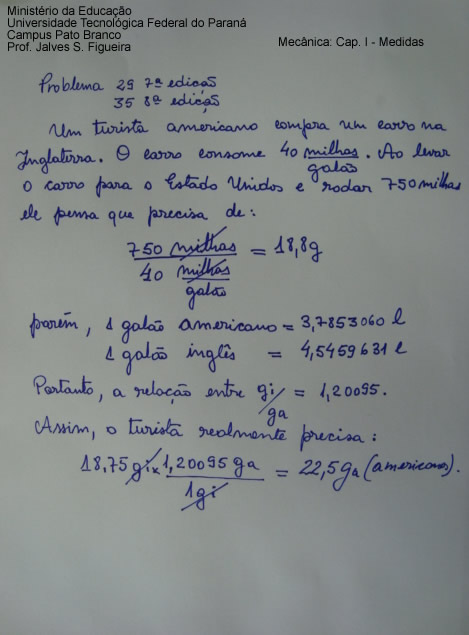 Ministério da Educação
Universidade Tecnológica Federal do Paraná
Campus Pato Branco
Prof. Jalves S. Figueira
Mecânica: Cap. I - Medidas
Problema 29 7ª edição
35 8ª edição
Um turista americano compra um carro na
Inglaterra. O carro consome 40 milhas/galão. Ao levar
o carro para o Estado Unidos e rodar 750 milhas
ele pensa que precisa de:
750 milhas / 40 milhas/galão = 18,8g
porém, 1 galão americano = 3,7853060 l
1 galão inglês = 4,5459631 l
Portanto, a relação entre gi/ga = 1,20095.
Assim, o turista realmente precisa:
18,75 gi x 1,20095 ga / 1gi = 22,5 ga (americanos).